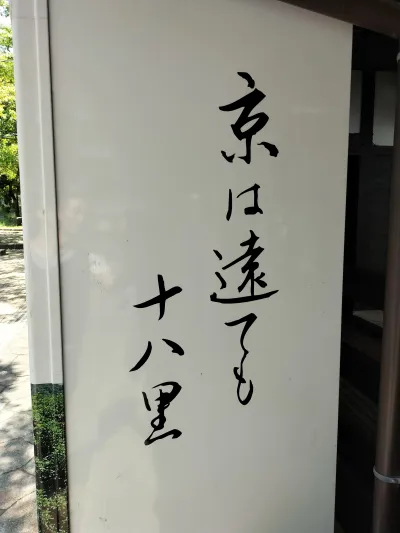 京は遠ても
十八里